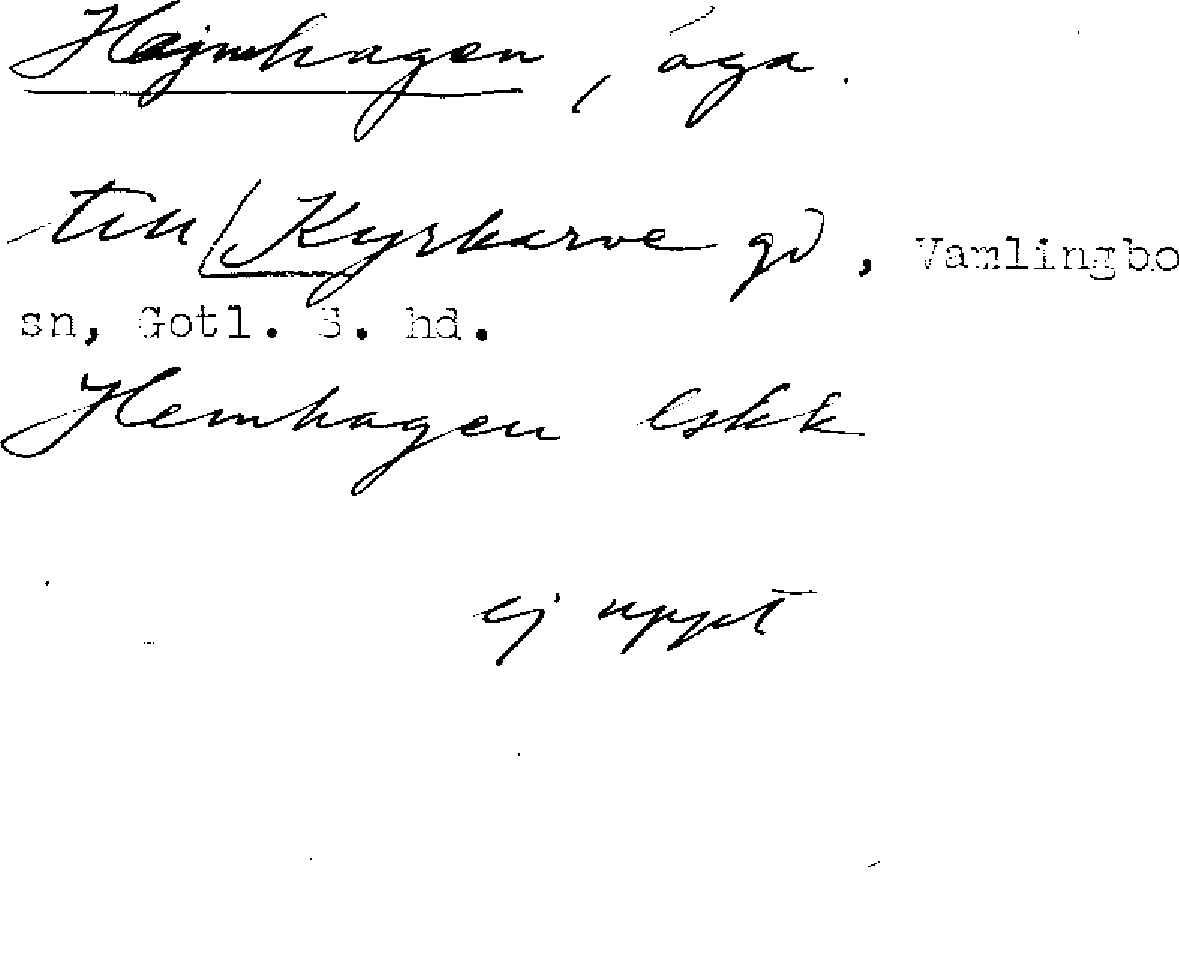 Hajmhagen, äga.
till Kyrkarve gd, Vamlingbo
sn, Gotl. S. hd.
Hemhagen Eskk
ej uppt